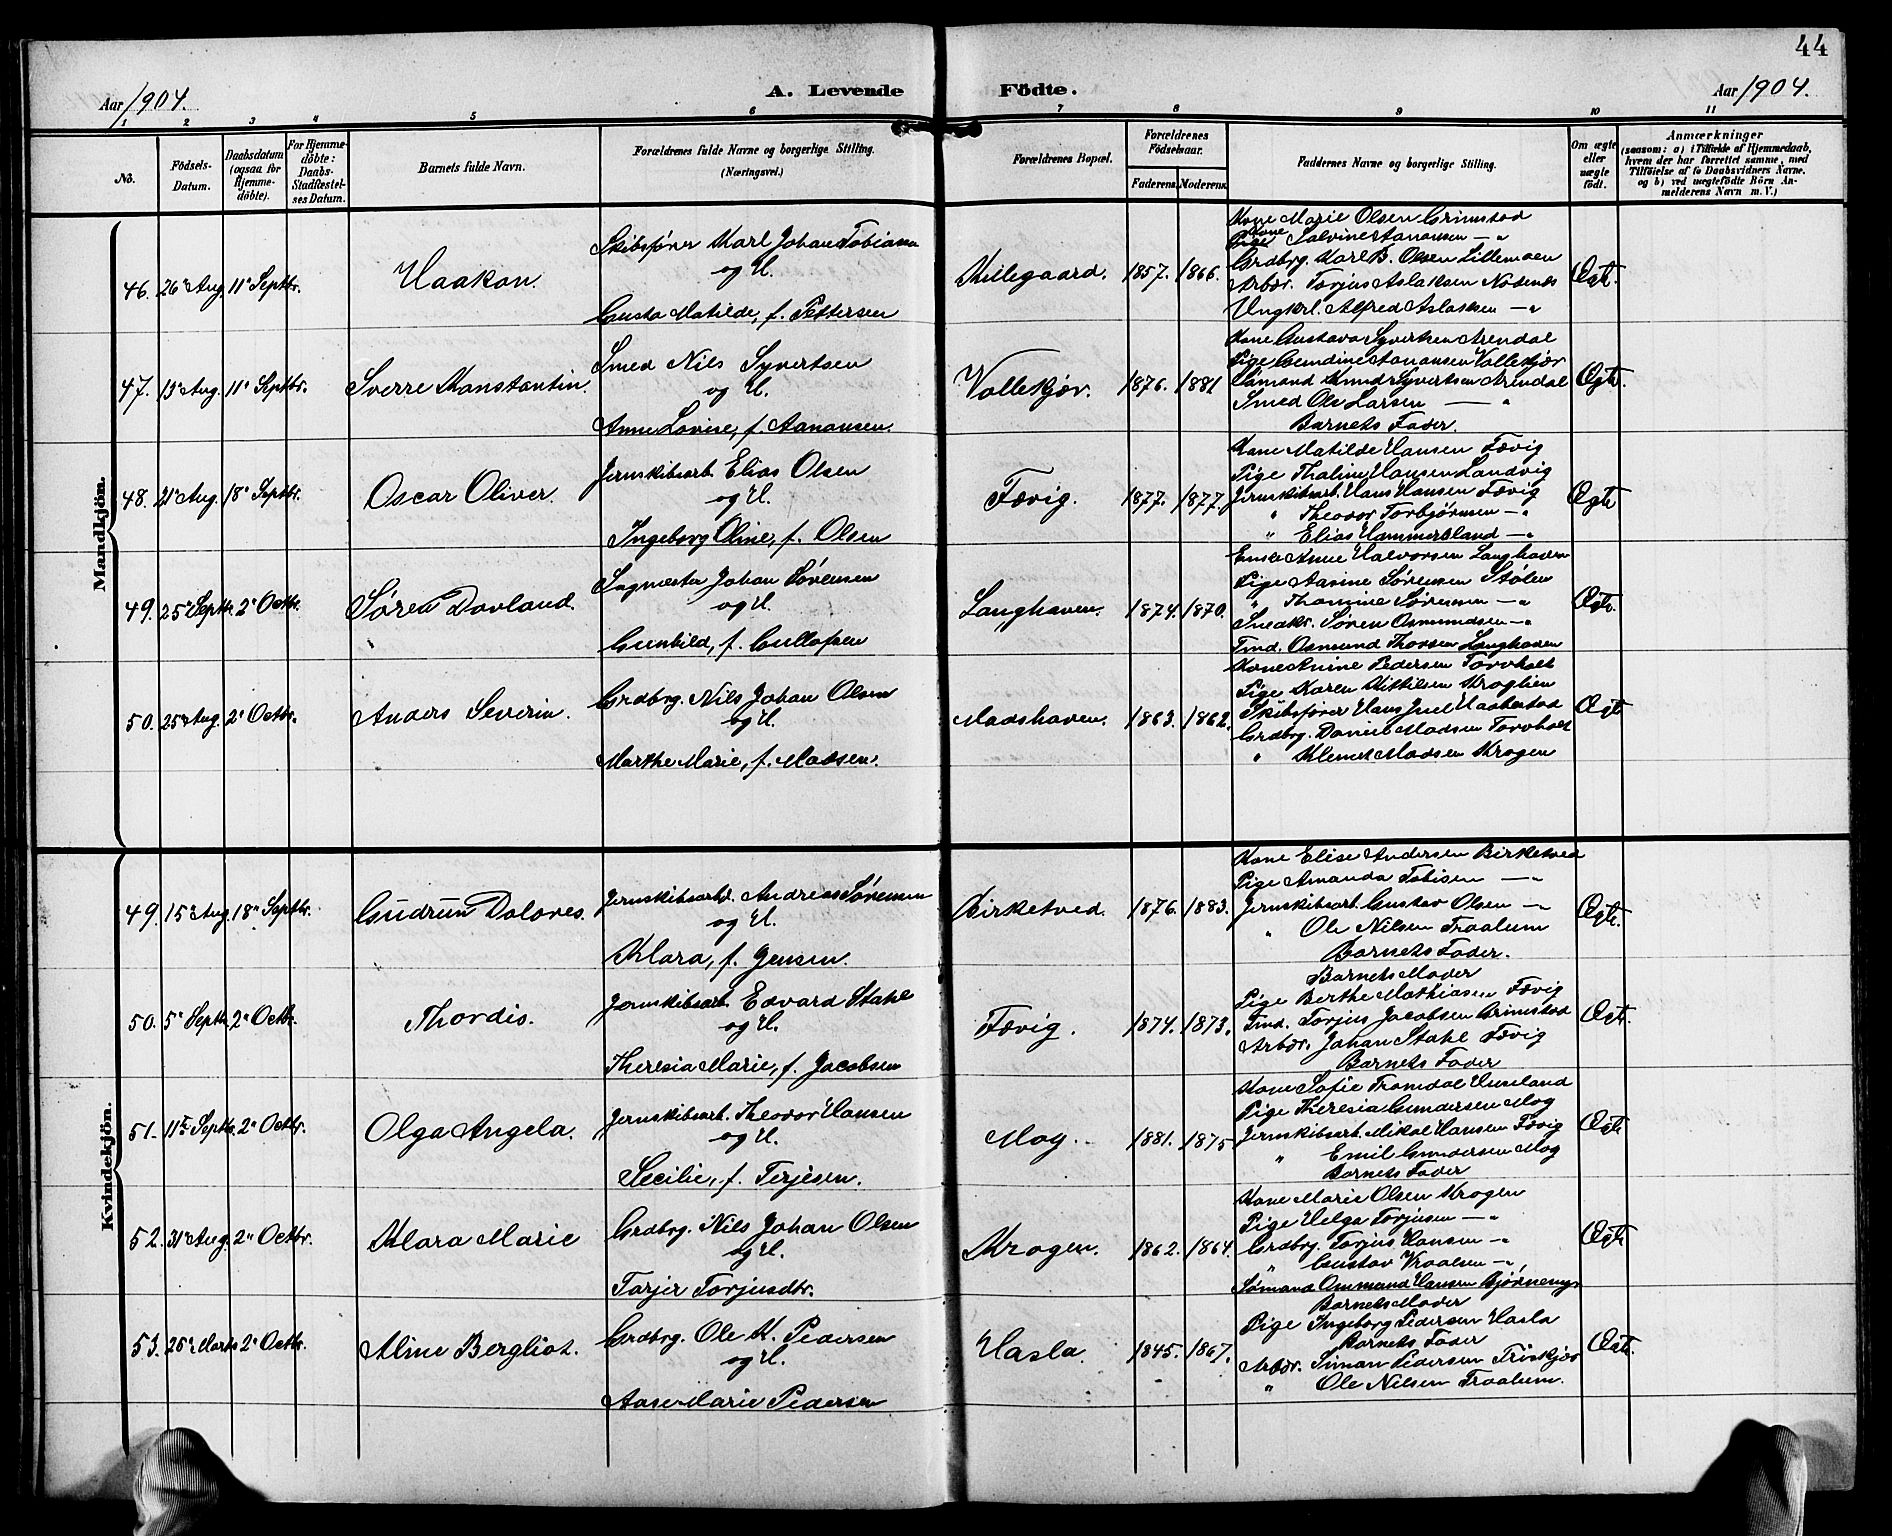 44
Aar 1904.
A. Levende Födte.
Aar 1904.
1 2 3 4 5 6 7 8 9 10 11
No.
Födsels-
Datum.
Daabsdatum
(ogsaa for
Hjemme-
döbte).
For Hjemme-
döbte:
Daabs-
Stadfæstel-
ses Datum.
Barnets fulde Navn.
Forældrenes fulde Navne og borgerlige Stilling.
(Næringsvei.)
Forældrenes Bopæl.
Forældrenes
Födselsaar.
Faderens. Moderens.
Faddernes Navne og borgerlige Stilling.
Om ægte
eller
uægte
födt.
Anmærkninger
(saasom: a) i Tilfælde af Hjemmedaab,
hvem der har forrettet samme, med
Tilföielse af to Daabsvidners Navne,
og b) ved uægtefödte Börn An-
melderens Navn m. V.)
Mandkjön.
46. 26 Aug. 11 Septbr. Haakon.
Skibsfører Karl Johan Tobiasen
og H.
Gusta Matilde, f. Pettersen
Killegaard. 1857. 1866.
Kone Marie Olsen Grimstad
Kone Salvine Aanonsen — "
Grdbrg. Karl B. Olsen Lillemoen
Arbdr. Torjus Aslaksen Nødenes
Ungkrl. Alfred Aslaksen — "
Ægt.
47. 13 Aug. 11 Septbr. Sverre Konstantin.
Smed Nils Syvertsen
og H.
Anne Lovise, f. Aanonsen.
Vollekjær. 1876. 1881
Kone Gustava Syvertsen Arendal
Pige Gundine Aanonsen Vollekjær
Sømand Knud Syvertsen Arendal
Smed Ole Larsen — "
Barnets Fader.
Ægte.
48. 21 Aug. 18 Septbr. Oscar Oliver.
Jernskibsarb. Elias Olsen
og H.
Ingeborg Oline, f. Olsen
Fævig. 1877. 1877.
Kone Matilde Hansen Fævig
Pige Thaline Hansen Landvig
Jernskibsarb. Hans Hansen Fævig
" Theodor Torbjørnsen — "
" Elias Hammersland — "
Ægte
49. 25 Septbr. 2 Octbr. Søren Dovland.
Sagmester Johan Sørensen
og H.
Gunhild, f. Gullofsen
Langhaven. 1874. 1870.
Enke Anne Halvorsen Langhaven
Pige Aasine Sørensen Stølen
" Thomine Sørensen — "
Snedkr. Søren Osmundsen — "
Tmd. Osmund Thorsen Langhaven
Ægte.
50. 25 Aug. 2 Octbr. Anders Severin.
Grdbrg. Nils Johan Olsen
og H.
Marthe Marie, f. Madsen.
Madshaven. 1863. 1862.
Kone Anine Pedersen Torvholt
Pige Karen Kittilsen Kroglien
Skibsfører Hans Juel Haabestad
Grdbrg. Daniel Madsen Torvholt
" Klemet Madsen Krogen
Ægte
Kvindekjön.
49. 15 Aug. 18 Septbr. Gudrun Dolores.
Jernskibsarb. Andreas Sørensen
og H.
Klara, f. Jensen.
Birketved. 1876. 1883.
Kone Elise Andersen Birketved
Pige Amanda Tobisen — "
Jernskibsarb. Gustav Olsen — "
" Ole Nilsen Traalum
Barnets Fader.
Ægte.
50. 5 Septbr. 2 Octbr. Thordis.
Jernskibsarb. Edvard Stahl
og H.
Theresia Marie, f. Jacobsen
Fævig. 1874. 1873.
Barnets Moder
Pige Berthe Mathiasen Fævig
Tmd. Torjus Jacobsen Grimstad
Arbdr. Johan Stahl Fævig
Barnets Fader
Ægte.
51. 11 Septbr. 2 Octbr. Olga Angela.
Jernskibsarb. Theodor Hansen
og H.
Secilie, f. Terjesen.
Moy. 1881. 1875
Kone Sofie Tromdal
Pige Theresia Gundersen Moy
Jernskibsarb. Mikal Hansen Fævig
" Emil Gundersen Moy
Barnets Fader
Ægte
52. 31 Aug. 2 Octbr. Klara Marie
Grdbrg. Nils Johan Olsen
og H.
Torjer Torjusdtr.
Krogen. 1862. 1864.
Kone Marie Olsen Krogen
Pige Helga Torjusen — "
Grdbrg. Torjus Hansen — "
" Gustav Vraalsen — "
Sømand Ommund Hansen Bjørnemyr
Ægte
53. 26 Marts 2 Octbr. Aline Bergliot.
Grdbrg. Ole K. Pedersen
og H.
Aase Marie Pedersen
Hasla. 1845. 1867.
Barnets Moder
Pige Ingeborg Pedersen Hasla
Barnets Fader
Arbdr. Simon Pedersen Triskjær
" Ole Nilsen Traalum.
Ægte.